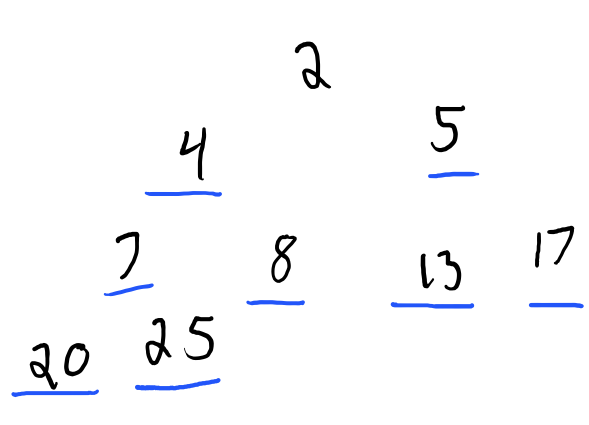 2
4 5
7 8 13 17
20 25